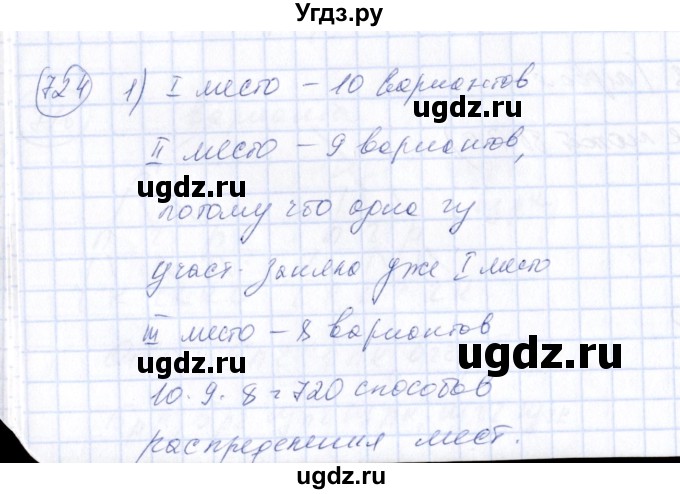 Угдз.ру
724 1) I место – 10 вариантов
II место – 9 вариантов,
ugdz.ru ugdz.ru
потому что одна
участ. заняла уже I место
III место – 8 вариантов
ugdz.ru ugdz.ru
10 · 9 · 8 = 720 способов
распределения мест.
ugdz.ru